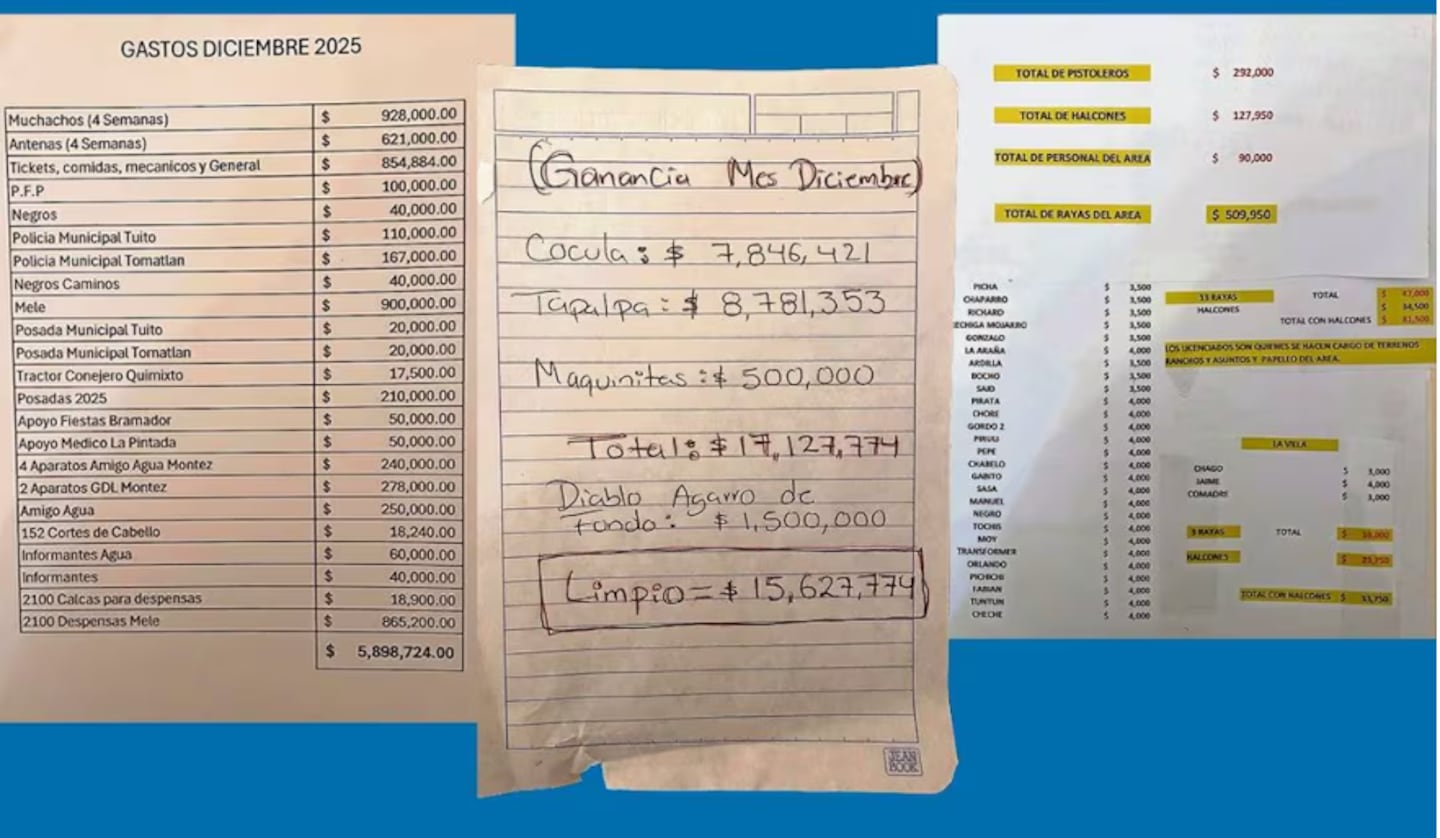 GASTOS DICIEMBRE 2025
Muchachos (4 Semanas) $ 928,000.00
Antenas (4 Semanas) $ 621,000.00
Tickets, comidas, mecanicos y General $ 854,884.00
P.F.P $ 100,000.00
Negros $ 40,000.00
Policia Municipal Tuito $ 110,000.00
Policia Municipal Tomatlan $ 167,000.00
Negros Caminos $ 40,000.00
Mele $ 900,000.00
Posada Municipal Tuito $ 20,000.00
Posada Municipal Tomatlan $ 20,000.00
Tractor Conejero Quimixto $ 17,500.00
Posadas 2025 $ 210,000.00
Apoyo Fiestas Bramador $ 50,000.00
Apoyo Medico La Pintada $ 50,000.00
4 Aparatos Amigo Agua Montez $ 240,000.00
2 Aparatos GDL Montez $ 278,000.00
Amigo Agua $ 250,000.00
152 Cortes de Cabello $ 18,240.00
Informantes Agua $ 60,000.00
Informantes $ 40,000.00
2100 Calcas para despensas $ 18,900.00
2100 Despensas Mele $ 865,200.00
$ 5,898,724.00
(Ganancia Mes Diciembre)
Cocula: $ 7,846,421
Tapalpa: $ 8,781,353
Maquinitas: $ 500,000
Total: $ 17,127,774
Diablo Agarro de
fondo: $ 1,500,000
Limpio = $ 15,627,774
JEAN
BOOK
TOTAL DE PISTOLEROS $ 292,000
TOTAL DE HALCONES $ 127,950
TOTAL DE PERSONAL DEL AREA $ 90,000
TOTAL DE RAYAS DEL AREA $ 509,950
PICHA $ 3,500
CHAPARRO $ 3,500
RICHARD $ 3,500
ECHIGA MOJARRO $ 3,500
GONZALO $ 3,500
LA ARAÑA $ 4,000
ARDILLA $ 3,500
BOCHO $ 3,500
SAID $ 3,500
PIRATA $ 4,000
CHORE $ 4,000
GORDO 2 $ 4,000
PIRULI $ 4,000
PEPE $ 4,000
CHABELO $ 4,000
GABITO $ 4,000
SASA $ 4,000
MANUEL $ 4,000
NEGRO $ 4,000
TOCHIS $ 4,000
MOY $ 4,000
TRANSFORMER $ 4,000
ORLANDO $ 4,000
PICHICHI $ 4,000
FABIAN $ 4,000
TUNTUN $ 4,000
CHECHE $ 4,000
13 RAYAS TOTAL $ 47,000
HALCONES $ 34,500
TOTAL CON HALCONES $ 81,500
LOS LICENCIADOS SON QUIENES SE HACEN CARGO DE TERRENOS
RANCHOS Y ASUNTOS Y PAPELEO DEL AREA.
LA VILLA
CHAGO $ 3,000
JAIME $ 4,000
COMADRE $ 3,000
3 RAYAS TOTAL $ 10,000
HALCONES $ 23,750
TOTAL CON HALCONES $ 33,750